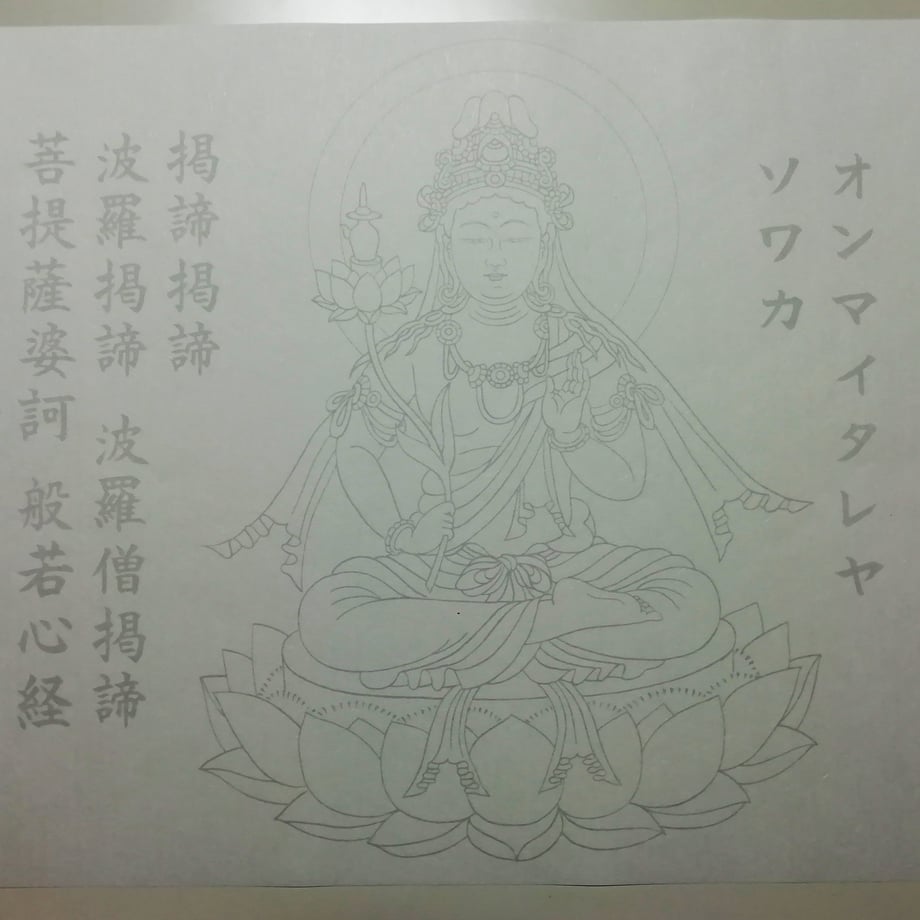 オンマイタレヤ
ソワカ
掲諦掲諦
波羅掲諦 波羅僧掲諦
菩提薩婆訶 般若心経